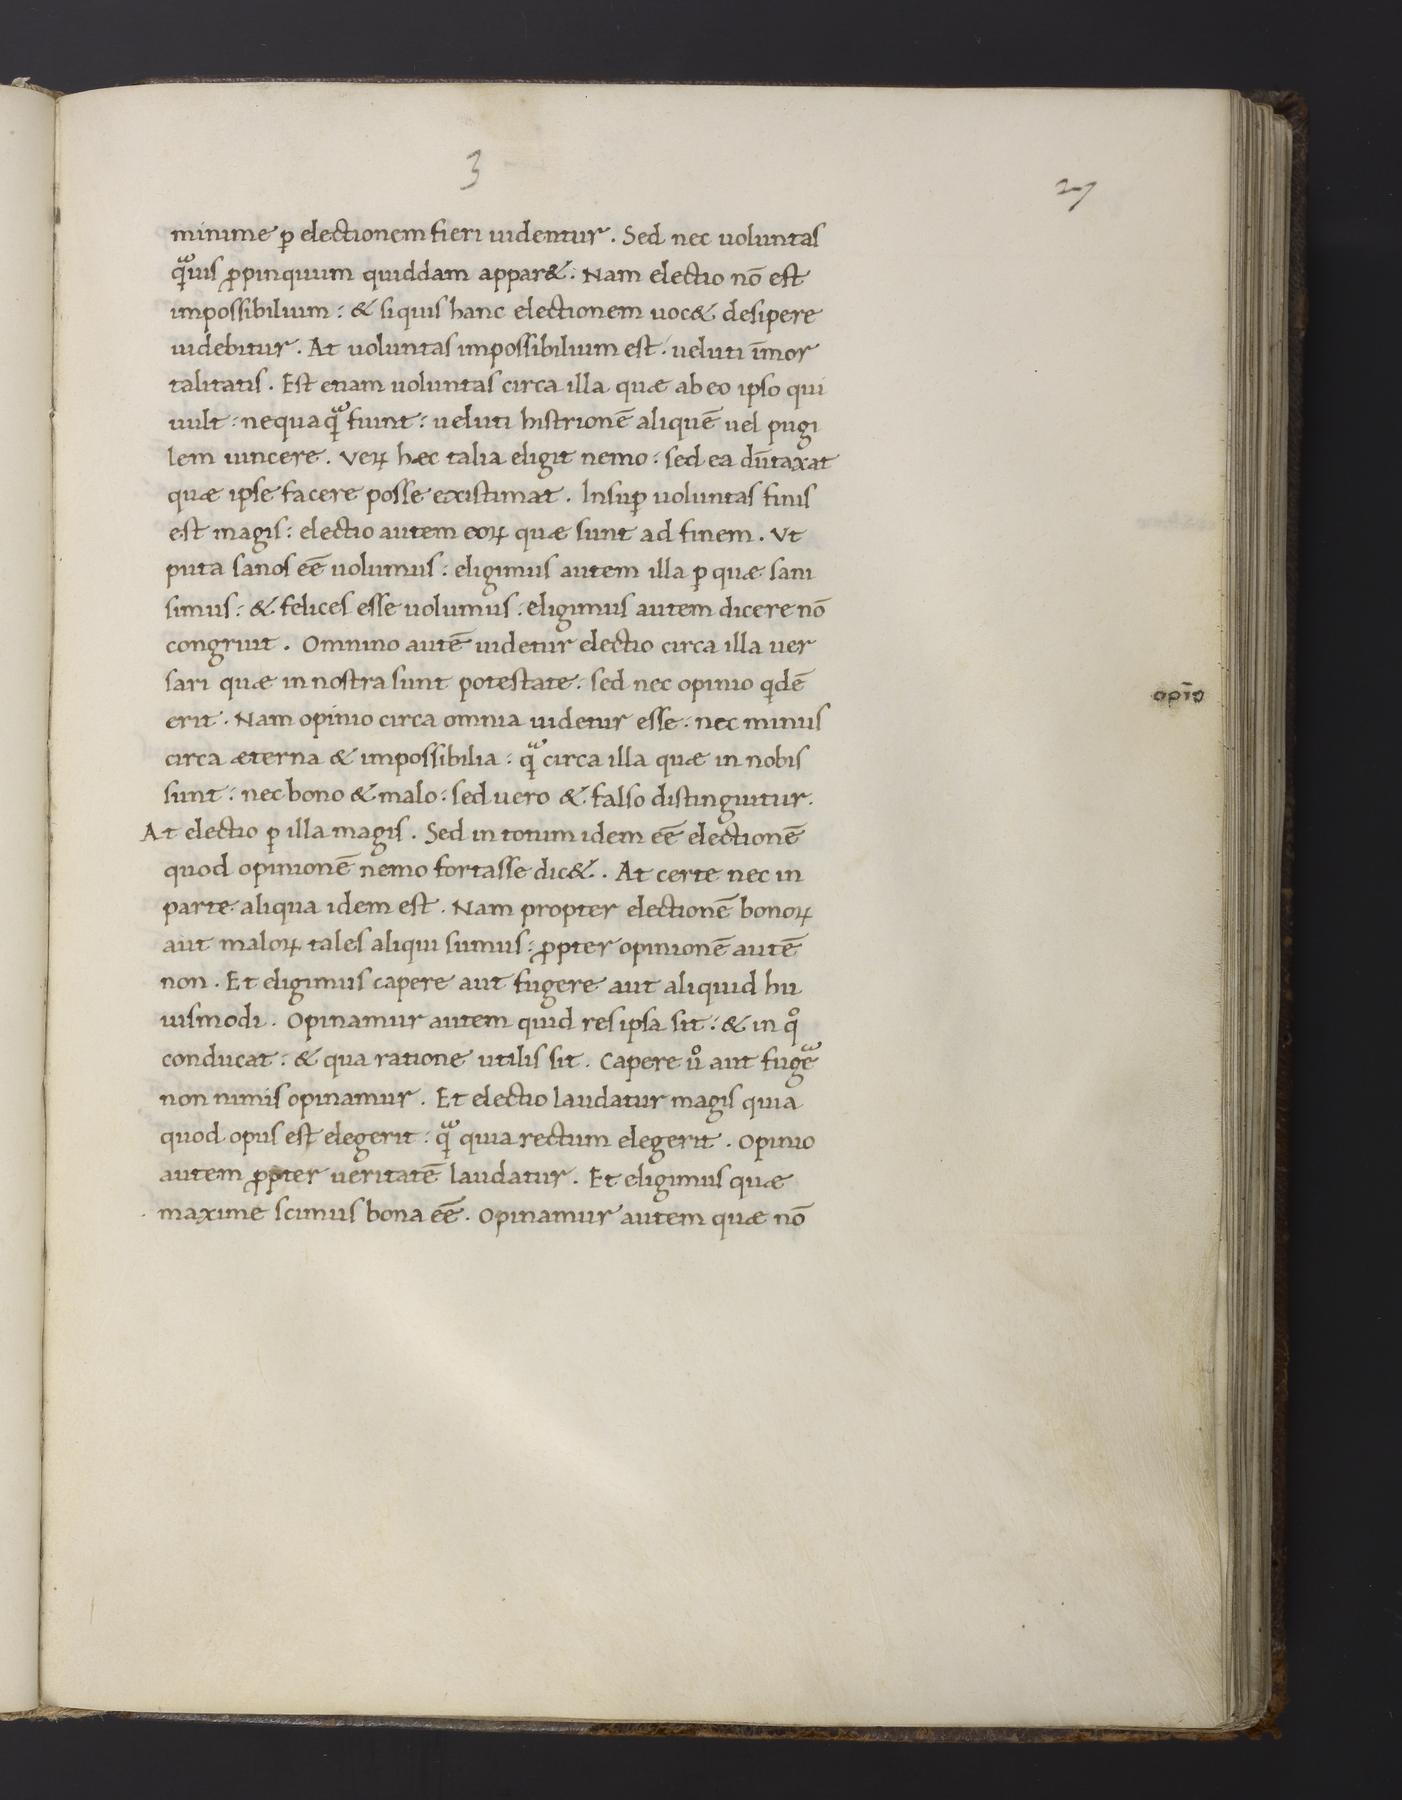 3
27
minime ꝑ electionem fieri uidentur. Sed nec uoluntas
qᷓuis ꝓpinquum quiddam appar&. Nam electio nō est
impossibilium: & siquis hanc electionem uoc& desipere
uidebitur. At uoluntas impossibilium est: ueluti īmor
talitatis. Est etiam uoluntas circa illa quæ ab eo ipso qui
uult: nequaqᷓ fiunt: ueluti histrionē aliquē uel pugi
lem uincere. Veꝝ hæc talia eligit nemo: sed ea dūtaxat
quæ ipse facere posse existimat. Insuꝑ uoluntas finis
est magis: electio autem eoꝝ quæ sunt ad finem. Vt
puta sanos eē uolumus: eligimus autem illa ꝑ quæ sani
simus: & felices esse uolumus: eligimus autem dicere nō
congruit. Omnino autē uidetur electio circa illa uer
sari quæ in nostra sunt potestate: sed nec opinio qdē
erit. Nam opinio circa omnia uidetur esse: nec minus
opīo
circa æterna & impossibilia: qᷓ circa illa quæ in nobis
sunt: nec bono & malo: sed uero & falso distinguitur.
At electio ꝑ illa magis. Sed in totum idem eē electionē
quod opinionē nemo fortasse dic&. At certe nec in
parte aliqua idem est. Nam propter electionē bonoꝝ
aut maloꝝ tales aliqui sumus: ꝓpter opinionē autē
non. Et eligimus capere aut fugere aut aliquid hu
iusmodi. Opinamur autem quid res ipsa sit: & in qͦ
conducat: & qua ratione utilis sit. Capere uͦ aut fugeᷓ
non nimis opinamur. Et electio laudatur magis quia
quod opus est elegerit: qᷓ quia rectum elegerit. Opinio
autem ꝓpter ueritatē laudatur. Et eligimus quæ
maxime scimus bona eē. Opinamur autem quæ nō